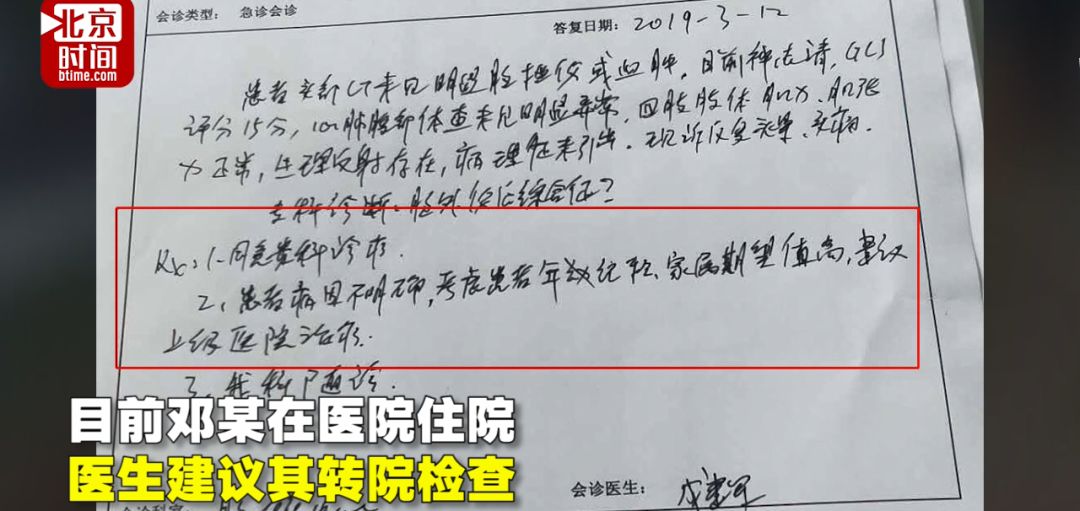 北京
时间
btime.com
会诊类型: 急诊会诊
答复日期: 2019-3-12
患者文新CT未见明显脑挫伤或血肿,目前神志清,GCS
评分15分,心肺腹部体查未见明显异常,四肢肢体肌力、肌张
力正常,生理反射存在,病理征未引出.现诉反复头晕、
专科诊断:脑外伤后综合征?
Rx:1.同意贵科诊疗.
2、患者病因不明确,考虑患者年龄纪轻、家属期望值高,建议
上级医院治疗.
3、我科随诊.
目前邓某在医院住院
医生建议其转院检查
会诊医生:
会诊科室: